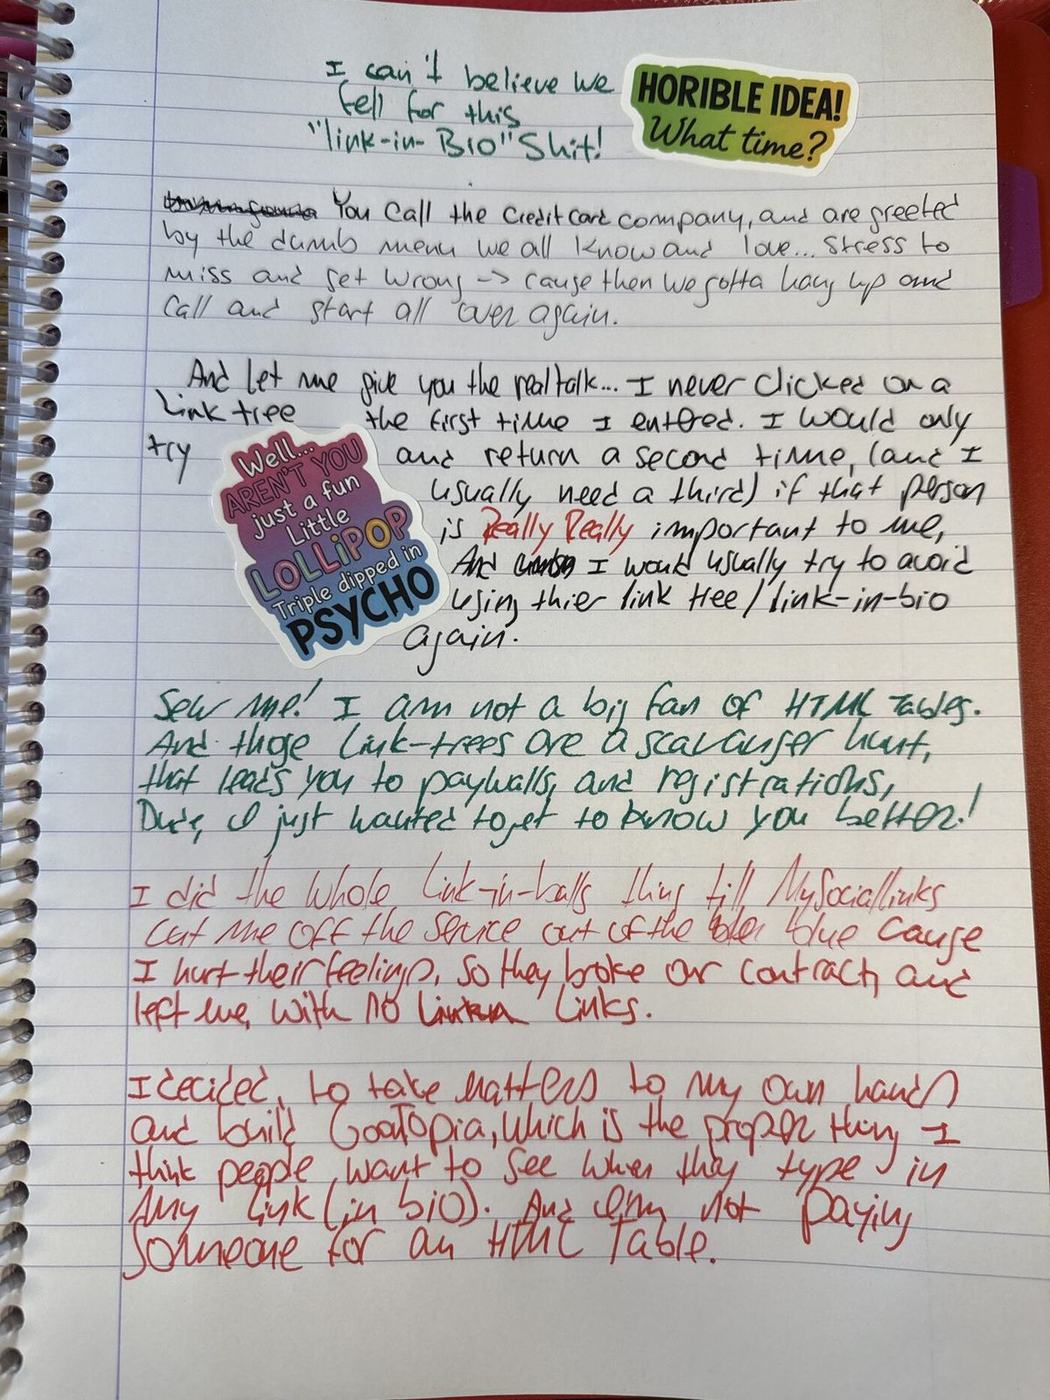 I can't believe we
fell for this
"link-in-BIO" Shit!
HORIBLE IDEA!
What time?
You Call the Credit Card company, and are greeted
by the dumb menu we all know and love... Stress to
miss and get wrong -> cause then we gotta hang up and
Call and start all over again.
And let me give you the real talk... I never clicked on a
link tree the first time I entered. I would only
try and return a second time, (and I
usually need a third) if that person
is Really Really important to me,
And I would usually try to avoid
using thier link tree/link-in-bio
again.
Well...
AREN'T YOU
just a fun
Little
LOLLIPOP
Triple dipped in
PSYCHO
Sew me! I am not a big fan of HTML Tables.
And those link-trees are a scavanger hunt,
that leads you to paywalls, and registrations,
Dude, I just wanted to get to know you better!
I did the whole Link-in-balls thing till MySociallinks
cut me off the service out of the blue cause
I hurt their feelings, so they broke our contract, and
left me, with no Links.
I decided, to take matters to my own hands
and build GoatTopia, which is the proper thing I
think people want to see when they type in
Any link (in bio). And I'm not paying
someone for an HTML Table.